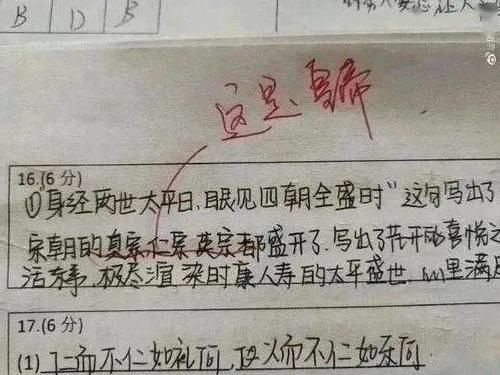 B D B
这是皇帝
16.(6分)
①"身经两世太平日,眼见四朝全盛时"这句写出了
宋朝的真宗仁宗英宗都盛开了.写出了花开的喜悦之
极尽渲染时康人寿的太平盛世.
17.(6分)
(1) 仁而不仁如礼何,
而不仁如乐何